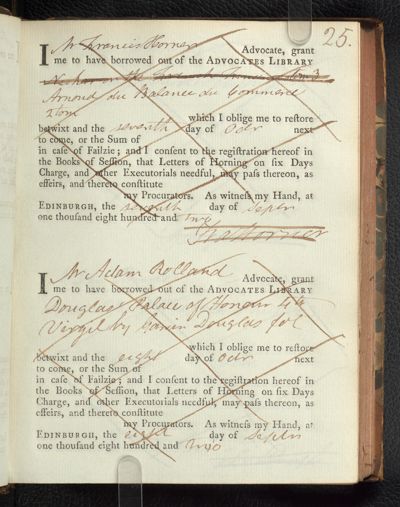 25.
I Mr Francis Horner Advocate, grant
me to have borrowed out of the ADVOCATES LIBRARY
Necker on the French Finances tom 3
Arnould du Balance du Commerce
2 tom
which I oblige me to reſtore
betwixt and the seventh day of Octr next
to come, or the Sum of
in caſe of Failzie; and I conſent to the regiſtration hereof in
the Books of Seſſion, that Letters of Horning on ſix Days
Charge, and other Executorials needful, may paſs thereon, as
effeirs, and thereto conſtitute
my Procurators. As witneſs my Hand, at
EDINBURGH, the seventh day of Septr
one thouſand eight hundred and two
Fra Horner
I Mr Adam Rolland Advocate, grant
me to have borrowed out of the ADVOCATES LIBRARY
Douglas Palace of Honour 4to
Virgil by Gavin Douglas fol
which I oblige me to reſtore
betwixt and the eight day of Octr next
to come, or the Sum of
in caſe of Failzie; and I conſent to the regiſtration hereof in
the Books of Seſſion, that Letters of Horning on ſix Days
Charge, and other Executorials needful, may paſs thereon, as
effeirs, and thereto conſtitute
my Procurators. As witneſs my Hand, at
EDINBURGH, the eight day of Septr
one thouſand eight hundred and two